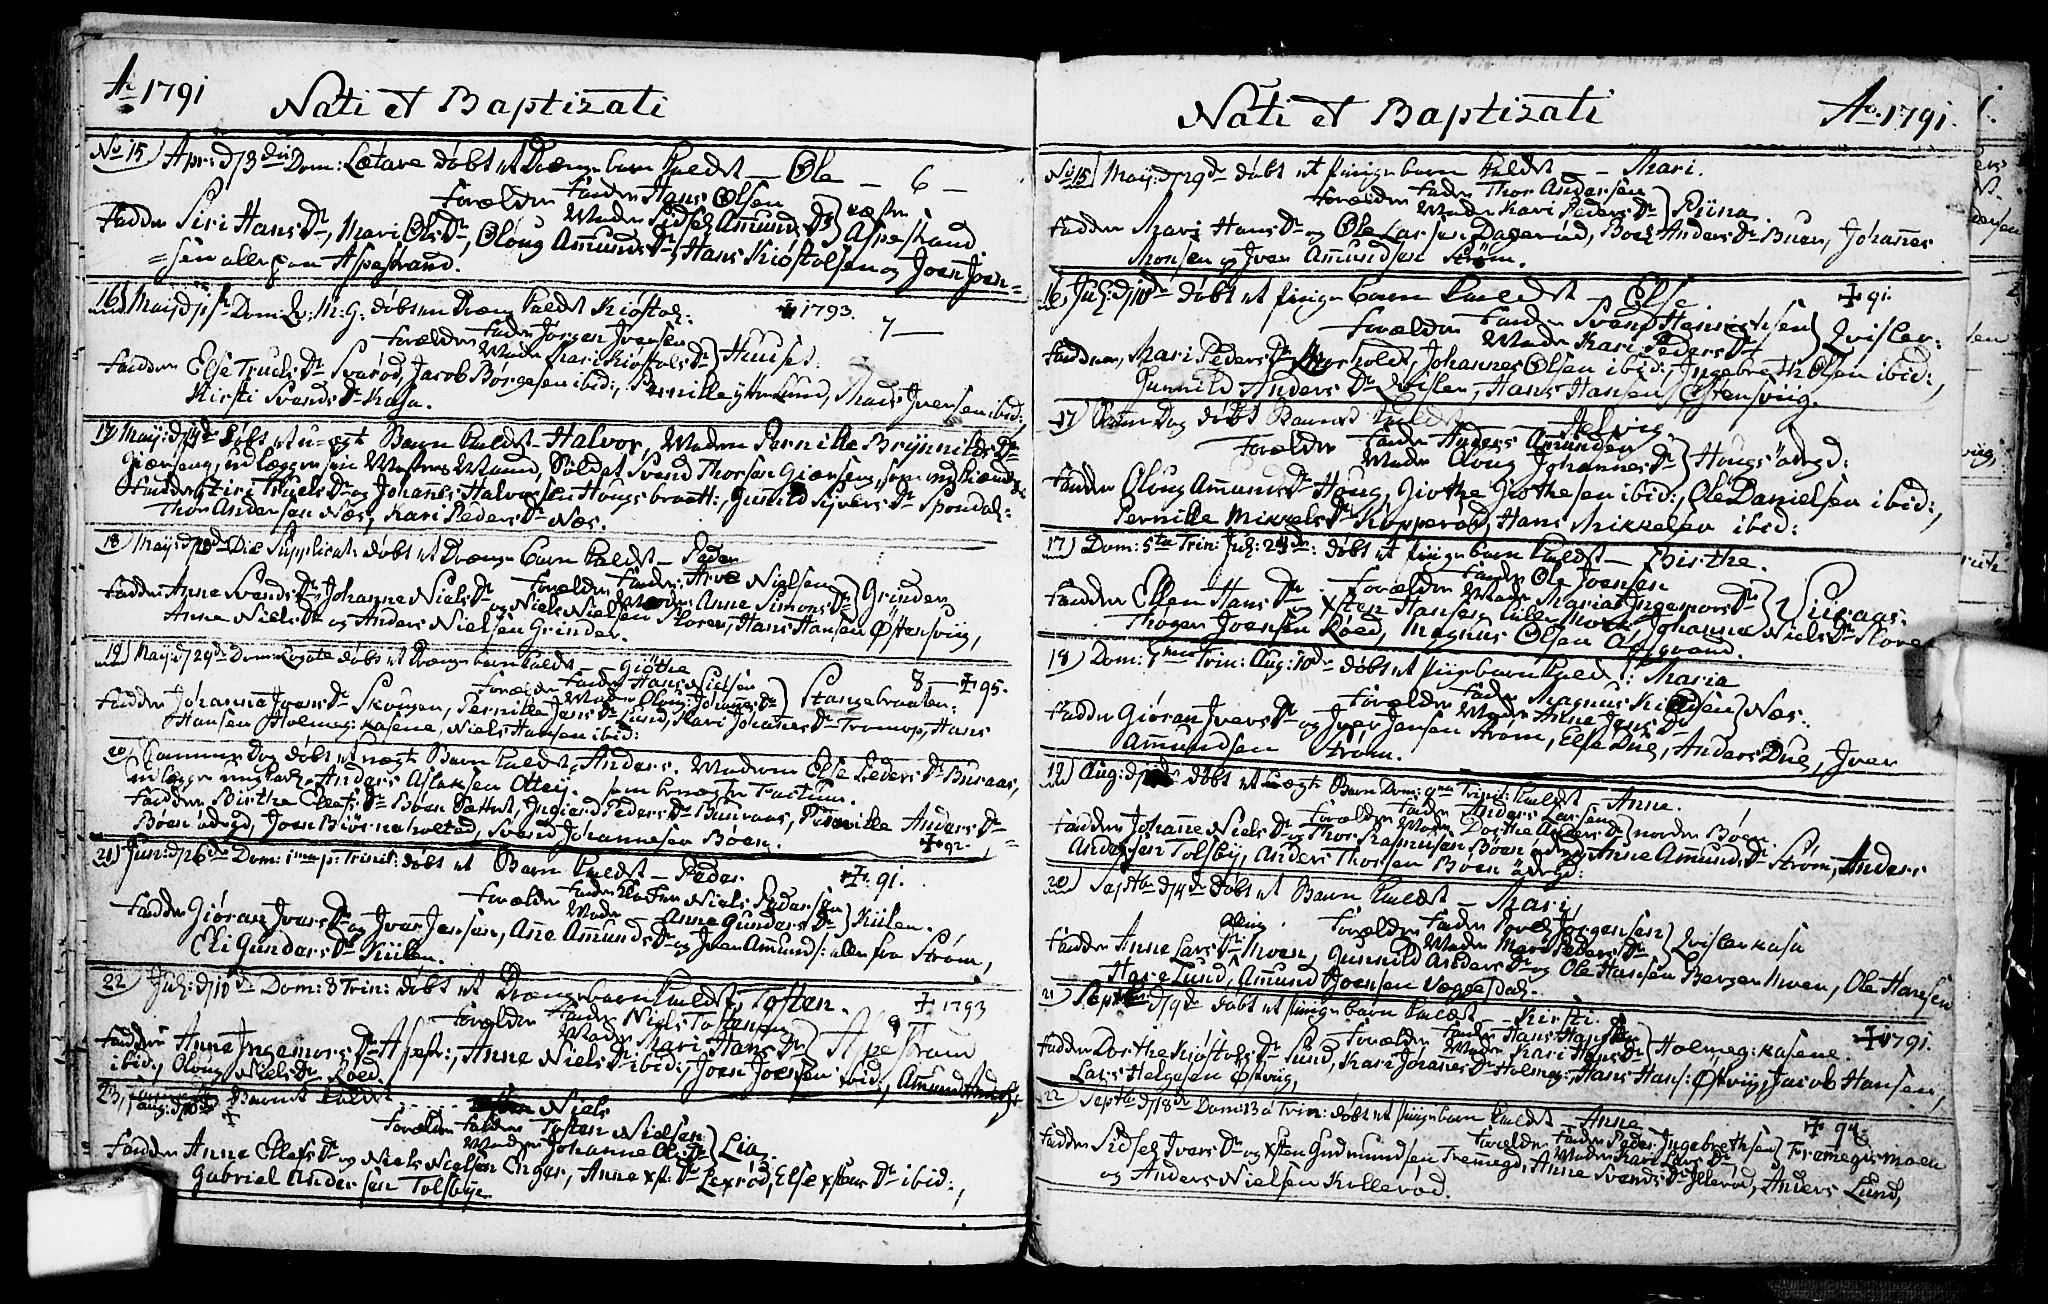 Ao 1791
Nati et Baptizati
No 15 Apr: d 3die Dom: Lætare døbt et Drænge barn kaldet — Ole — 6 —
Forældre Fader Hans Olsen
Moder Sidsel Amunds Dr
Aspestrand
Fadder Siri Hans Dr, Mari Ols Dr, Oloug Amunds Dr, Hans Kiøstolsen og Joen Joen=
=sen alle paa Aspestrand.
16 May: d 1ste Dom: Qv: M: G: døbt en Dreng kaldet Kiøstol: 1793. 7 —
Forældre Fader Jørgen Jversen
Moder Mari Kiøstols Dr Huuset.
Fadder Else Truels Dr Svarød, Jacob Børgesen ibid:, Pernille Lund, Mads Jversen ibid:,
Kirsti Svends Dr Kasa.
17 May: d døbt et u-ægt Barn kaldet — Halvor, Moderen Pernille Brynnilds Dr
Soldat Svend Thorsen
Fadder Siri Truels Dr og Johannes Halvorsen Hougsbraat:, Gunild Sivers Dr Spondal:
Thor Andersen Næs, Kari Peders Dr Næs.
18 May: Die Supplicat: døbt et Drænge barn kaldet — Peder
Forældre Fader: Arve Nielsen
Moder: Anne Simons Dr Grinder
Fadder Anne Svends Dr, Johanne Niels Dr og Niels Nielsen Floren, Hans Hansen Østensviig,
Anne Niels Dr og Anders Nielsen Grinder.
19 May: d 29de Dom: Rogate døbt et Drænge barn kaldt — Giøthe
Forældre Fader Hans Nielsen 8 — ✝ 95.
Moder Oloug Johannes Dr Stangebraaten:
Fadder Johanne Joens Dr Skougen, Pernille Jens Dr Lund, Kari Johannes Dr Tromop, Hans
Hansen Holmeg: kasene, Niels Hansen ibid:
20 Samme Dag døbt et uægt Barn kaldet Anders. Moderen Else Peders Dr Buraas,
Anders Aslaksen Ottøy. som benægter Factum.
Fadder Birthe Elefs Dr Bøen Sættet, Ingierd Peders Dr Buuraas, Pernille Anders Dr =
Bøen ødegd, Joen Biørneholtet, Svend Johannesen Bøen. ✝ 92.
21 Jun: d 26de Dom: 1ma p: Trinit: døbt et Barn kaldet — Peder ✝ 91.
Forældre Fader Niels Pedersen
Moder Anne Gunders Dr Kiilen.
Fadder Giøran Jvers Dr og Jver Jensen, Anne Amunds Dr og Jver Amunds: alle fra Strøm,
Eli Gunders Dr Kiilen.
22 Jul: d 10de Dom: 3 Trin: døbt et Drængebarn kaldet Tosten. ✝ 1793
Forældre Fader Niels Tostensen 9
Moder Mari Hans Dr Aspestrand
Fadder Anne Jngemors Dr Aspestr:, Anne Niels Dr ibid:, Joen Joensen ibid:, Amund
ibid:, Oloug Niels Dr Røed.
23, Aug: d Barnet kaldet Niels
Forældre Fader Tosten Nielsen
Moder Johanne Ols Dr Lia.
Fadder Anne Elefs Dr og Niels Nielsen Enger, Anne xst: Dr Lexrød, Else xstens Dr ibid:,
Gabriel Andersen Tolsbye.
Nati et Baptizati
Ao. 1791.
No 15 May: d 29de døbt et Piigebarn kaldet — Mari.
Forældre Fader Thor Andersen
Moder Kari Peders Dr Piina.
Fadder Mari Hans Dr og Ole Larsen Dagerød, Boel Anders Dr Buer, Johannes
Monsen og Jver Amundsen Strøm.
16, Jul: d 10de døbt et Piige Barn kaldet Else. ✝ 91.
Forældre Fader Svend Henrichsen
Moder Kari Peders Dr Qvisler:
Fadderne, Mari Peders Dr Morholdt, Johannes Olsen ibid:, Jngebreth Olsen ibid:,
Gunnild Anders Dr Qvisler, Hans Hansen Østensviig.
17 Samme Dag døbt Barnet kaldet Helvig
Forældre Fader Anders Amundsen
Moder Oloug Johannes Dr Hougs ødegd:
Fadder Oloug Amunds Dr Houg, Giøthe Giøthesen ibid:, Ole Danielsen ibid:,
Pernille Mikkels Dr Kopperød, Hans Mikkelsen ibid:
17 Dom: 5ta Trin: Jul: 24de: døbt et Piige barn kaldet — Birthe.
Forældre Fader Ole Joensen
Moder Maria Jngemors Dr
Fadder Ellen Hans Dr og xsten Hansen, Johanne Niels Dr Floren
Thoger Joensen Røed, Magnus Olsen
18 Dom: 7me Trin: Aug: døbt et Piigebarn kaldet: Maria
Forældre Fader Magnus
Moder Anne Jens Dr Næs.
Fadder Giøran Jvers Dr og Jver Jensen Strøm, Else Due, Anders Due, Jver
Amundsen Strøm.
19 Aug: døbt et uægte Barn Dom: 9na Trinit: kaldet — Anne.
Forældre Fader Anders Larsen
Moder Dorthe Anders Dr nordre Bøen
Fadder Johanne Niels Dr og Thor Rasmusen Bøen ødegd, Anne Amunds Dr Strøm, Anders
Andersen Tolsby, Anders Thorsen Bøen ødegd:
20 Septbr d 4de døbt et Barn kaldet — Mari,
Forældre Fader Povel Jørgensen
Moder Mari Peders Dr Qvislerkasa
Fadder Anne Lars Dr Moen, Gunnild Anders Dr og Ole Hansen Berger Moen, Ole Hansen
Hare Lund, Amund Joensen Væggesdal.
21 Septbr døbt et Piige barn kaldet — Kirsti.
Forældre Fader Hans Hansen
Moder Kari Hans Dr Holmeg: kasene. ✝ 1791.
Fadder Dorthe Kiøstols Dr Lund, Kari Johannes Dr Holmeg:, Hans Hans: Østvig, Jacob Hansen,
Lars Helgesen Østvig,
22 Septbr d 18de Dom: 13a Trin: døbt et Piige barn kaldet Anne
Forældre Fader Peder Jngebrethsen ✝ 94.
Moder Kari Lars Dr Fremegismoen
Fadder Sidsel Jvers Dr og xsten Gudmundsen Fremegd, Anne Svends Dr Jllerød, Anders Lund,
og Anders Nielsen Kollerød.